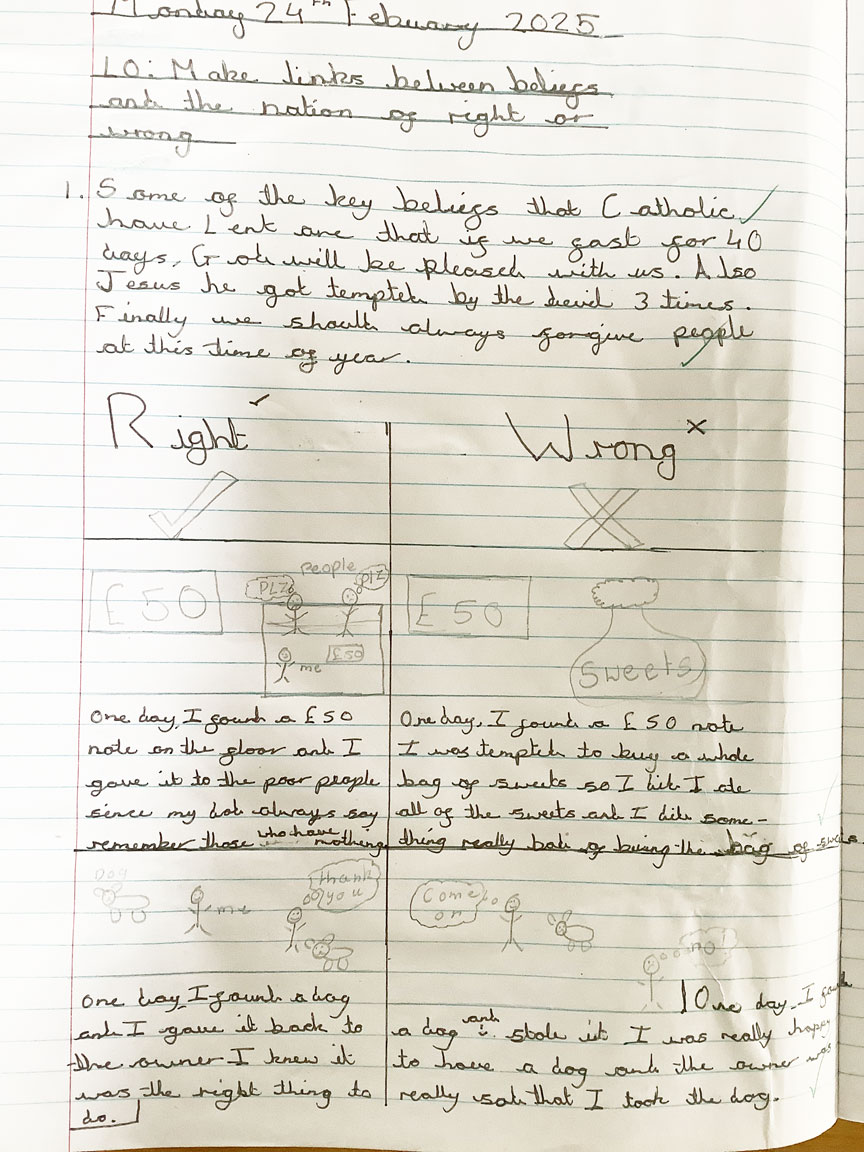 Monday 24th Febuary 2025
LO: Make links between beliefs
and the nation of right or
wrong
1. Some of the key beliefs that Catholic
have Lent are that if we fast for 40
days, God will be pleased with us. Also
Jesus he got tempted by the devil 3 times.
Finally we should always forgive people
at this time of year.
Right
Wrong
people
PLZ
PLZ
£50
me
£50
£50
Sweets
One day, I found a £50
note on the floor and I
gave it to the poor people
since my dad always say
remember those who have nothing
One day, I found a £50 note
I was tempted to buy a whole
bag of sweets so I did I ate
all of the sweets and I did some-
thing really bad of buing the bag of sweets
DOG
me
Thank
you
Come
on
no!
One day I found a dog
and I gave it back to
the owner I knew it
was the right thing to
do.
One day I found
a dog and stole it I was really happy
to have a dog and the owner was
really sad that I took the dog.